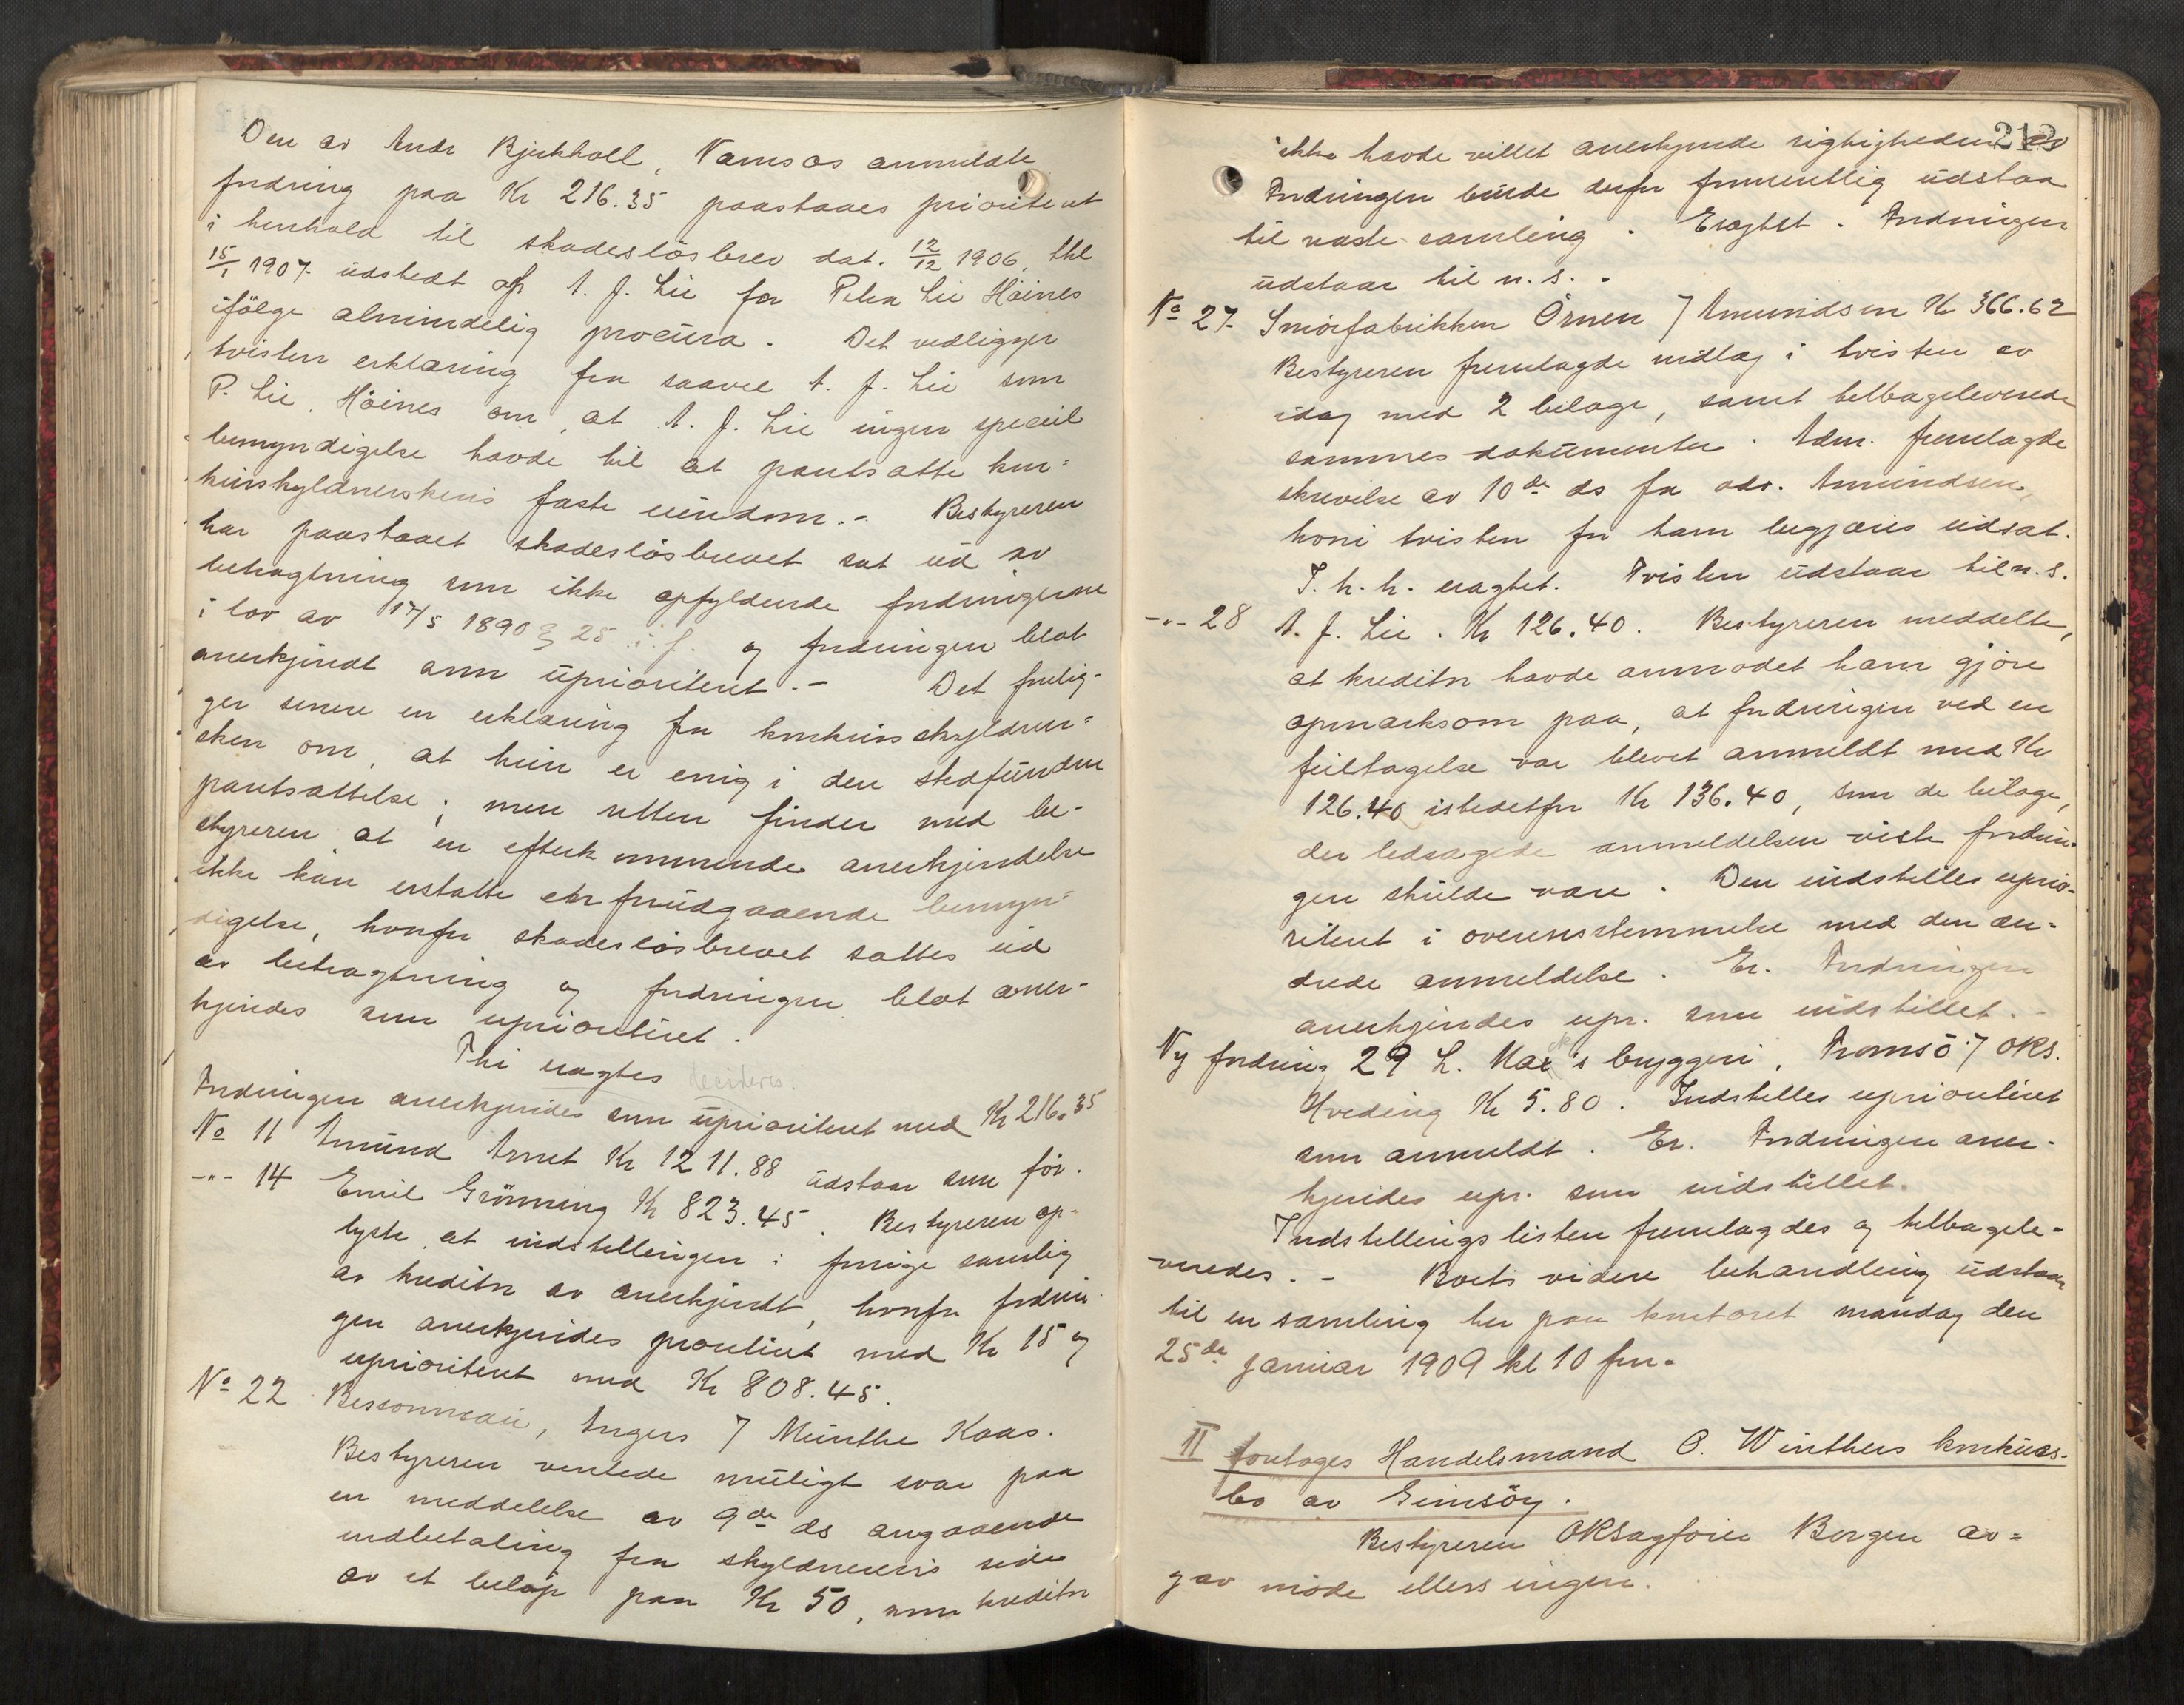 Den av Andr Bjerkholl, Namsos anmeldte
fordring paa Kr 216.35 paastaaes prioriteret
i henhold til skadeslösbrev dat. 12/12 1906, thl
15/1 1907 udstedt af A. J. Lie for Petra Lie Höines
ifölge almindelig procura. Det vedligger
tvisten erklæring fra saavel A. J. Lie som
P. Lie Höines om, at A. J. Lie ingen speciel
bemyndigelse havde til at pantsætte kon=
kursskyldnerskens faste eiendom. - Bestyreren
har paastaaet skadeslösbrevet sat ud av
betragtning som ikke opfyldende fordringerne
i lov av 17/5 1890 § 25 i. f. og fordringen blot
anerkjendt som uprioriteret. - Det forelig-
ger senere en erklæring fra konkursskyldner=
sken om, at hun er enig i den stedfundne
pantsættelse; men retten finder med be-
styreren, at en efterkommende anerkjendelse
ikke kan erstatte en forudgaaende bemyn=
digelse, hvorfor skadeslösbrevet sattes ud
av betragtning og fordringen blot aner-
kjendes som uprioriteret.
Thi eragtes decideres:
Fordringen anerkjendes som uprioriteret med Kr 216.35
No 11 Amund Arnet Kr 1211.88 udstaar som för.
-"- 14 Emil Grönning Kr 823.45. Bestyreren op-
lyste, at indstellingen i forrige samling
av kreditor er anerkjendt, hvorfor fordrin-
gen anerkjendes prioritert med Kr 15 og
uprioriteret med Kr 808.45.
No 22 Bessonneau, Angers / Munthe Kaas.
Bestyreren ventede muligt svar paa
en meddelelse av 9de ds angaaende
indbetaling fra skyldnerens side
av et belöp paa Kr 50, som kreditor
212
ikke havde villet anerkjende rigtigheden av
Fordringen burde derfor formentlig udstaa
til næste samling. Eragtet. Fordringen
udstaar til n. s. -
No 27 Smörfabrikken Örnen / Amundsen Kr 366.62
Bestyreren fremlagde indlæg i tvisten av
idag med 2 bilage, samt tilbageleverede
sammes dokumenter. Adm. fremlagde
skrivelse av 10de ds fra adv. Amundsen,
hvori tvisten for ham begjæres udsat.
T. h. h. eragtet. Tvisten udstaar til n. s.
-"- 28 A. J. Lie. Kr 126.40. Bestyreren meddelte,
at kreditor havde anmodet ham gjöre
opmærksom paa, at fordringen ved en
feiltagelse var blevet anmeldt med Kr
126.40 istedetfor Kr 136.40, som de bilage,
der ledsagede anmeldelsen viste fordrin-
gen skulde være. Den indstilles uprio-
riteret i overensstemmelse med den æn-
drede anmeldelse. Er. Fordringen
anerkjendes upr. som indstillet. -
Ny fordring 29 L. Mack's bryggeri, Tromsö / OKS.
Hveding Kr 5.80. Indstilles uprioritéret
som anmeldt. Er. Fordringen aner-
kjendes upr. som indstillet.
Indstellingslisten fremlagdes og tilbagele-
veredes. - Boets videre behandling udstaar
til en samling her paa kontoret mandag den
25de januar 1909 kl 10 fm.
II foretoges Handelsmand O. Winthers konkurs-
bo av Gimsöy.
Bestyreren OKSagförer Borgen av=
gav möde ellers ingen.